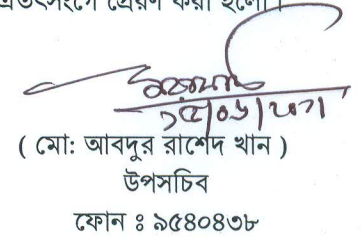 এতৎসংগে প্রেরণ করা হলো।
( মো: আবদুর রাশেদ খান )
উপসচিব
ফোন ঃ ৯৫৪০৪৩৮